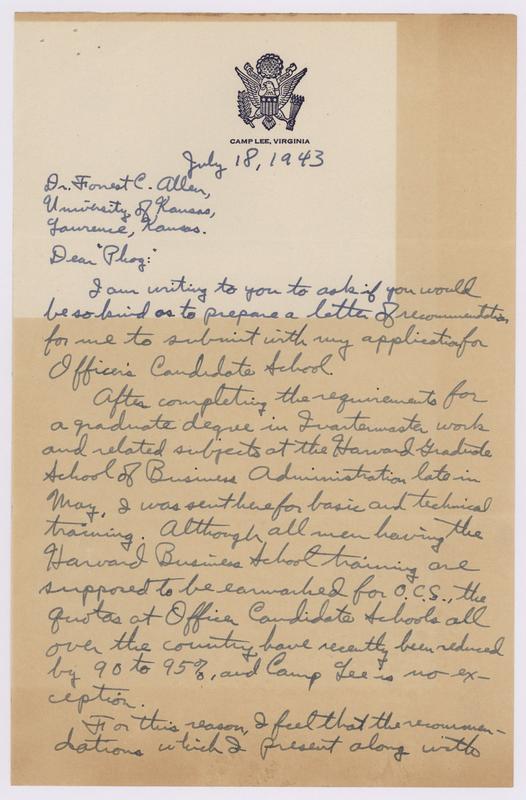 CAMP LEE, VIRGINIA
July 18, 1943
Dr. Forrest C. Allen,
University of Kansas,
Lawrence, Kansas.
Dear "Phog:"
I am writing to you to ask if you would
be so kind as to prepare a letter of recommendation
for me to submit with my application for
Officer's Candidate School.
After completing the requirements for
a graduate degree in Quartermaster work
and related subjects at the Harvard Graduate
School of Business Administration late in
May, I was sent here for basic and technical
training. Although all men having the
Harvard Business School training are
supposed to be earmarked for O.C.S., the
quotas at Officer Candidate Schools all
over the country have recently been reduced
by 90 to 95%, and Camp Lee is no ex-
ception.
For this reason, I feel that the recommen-
dations which I present along with